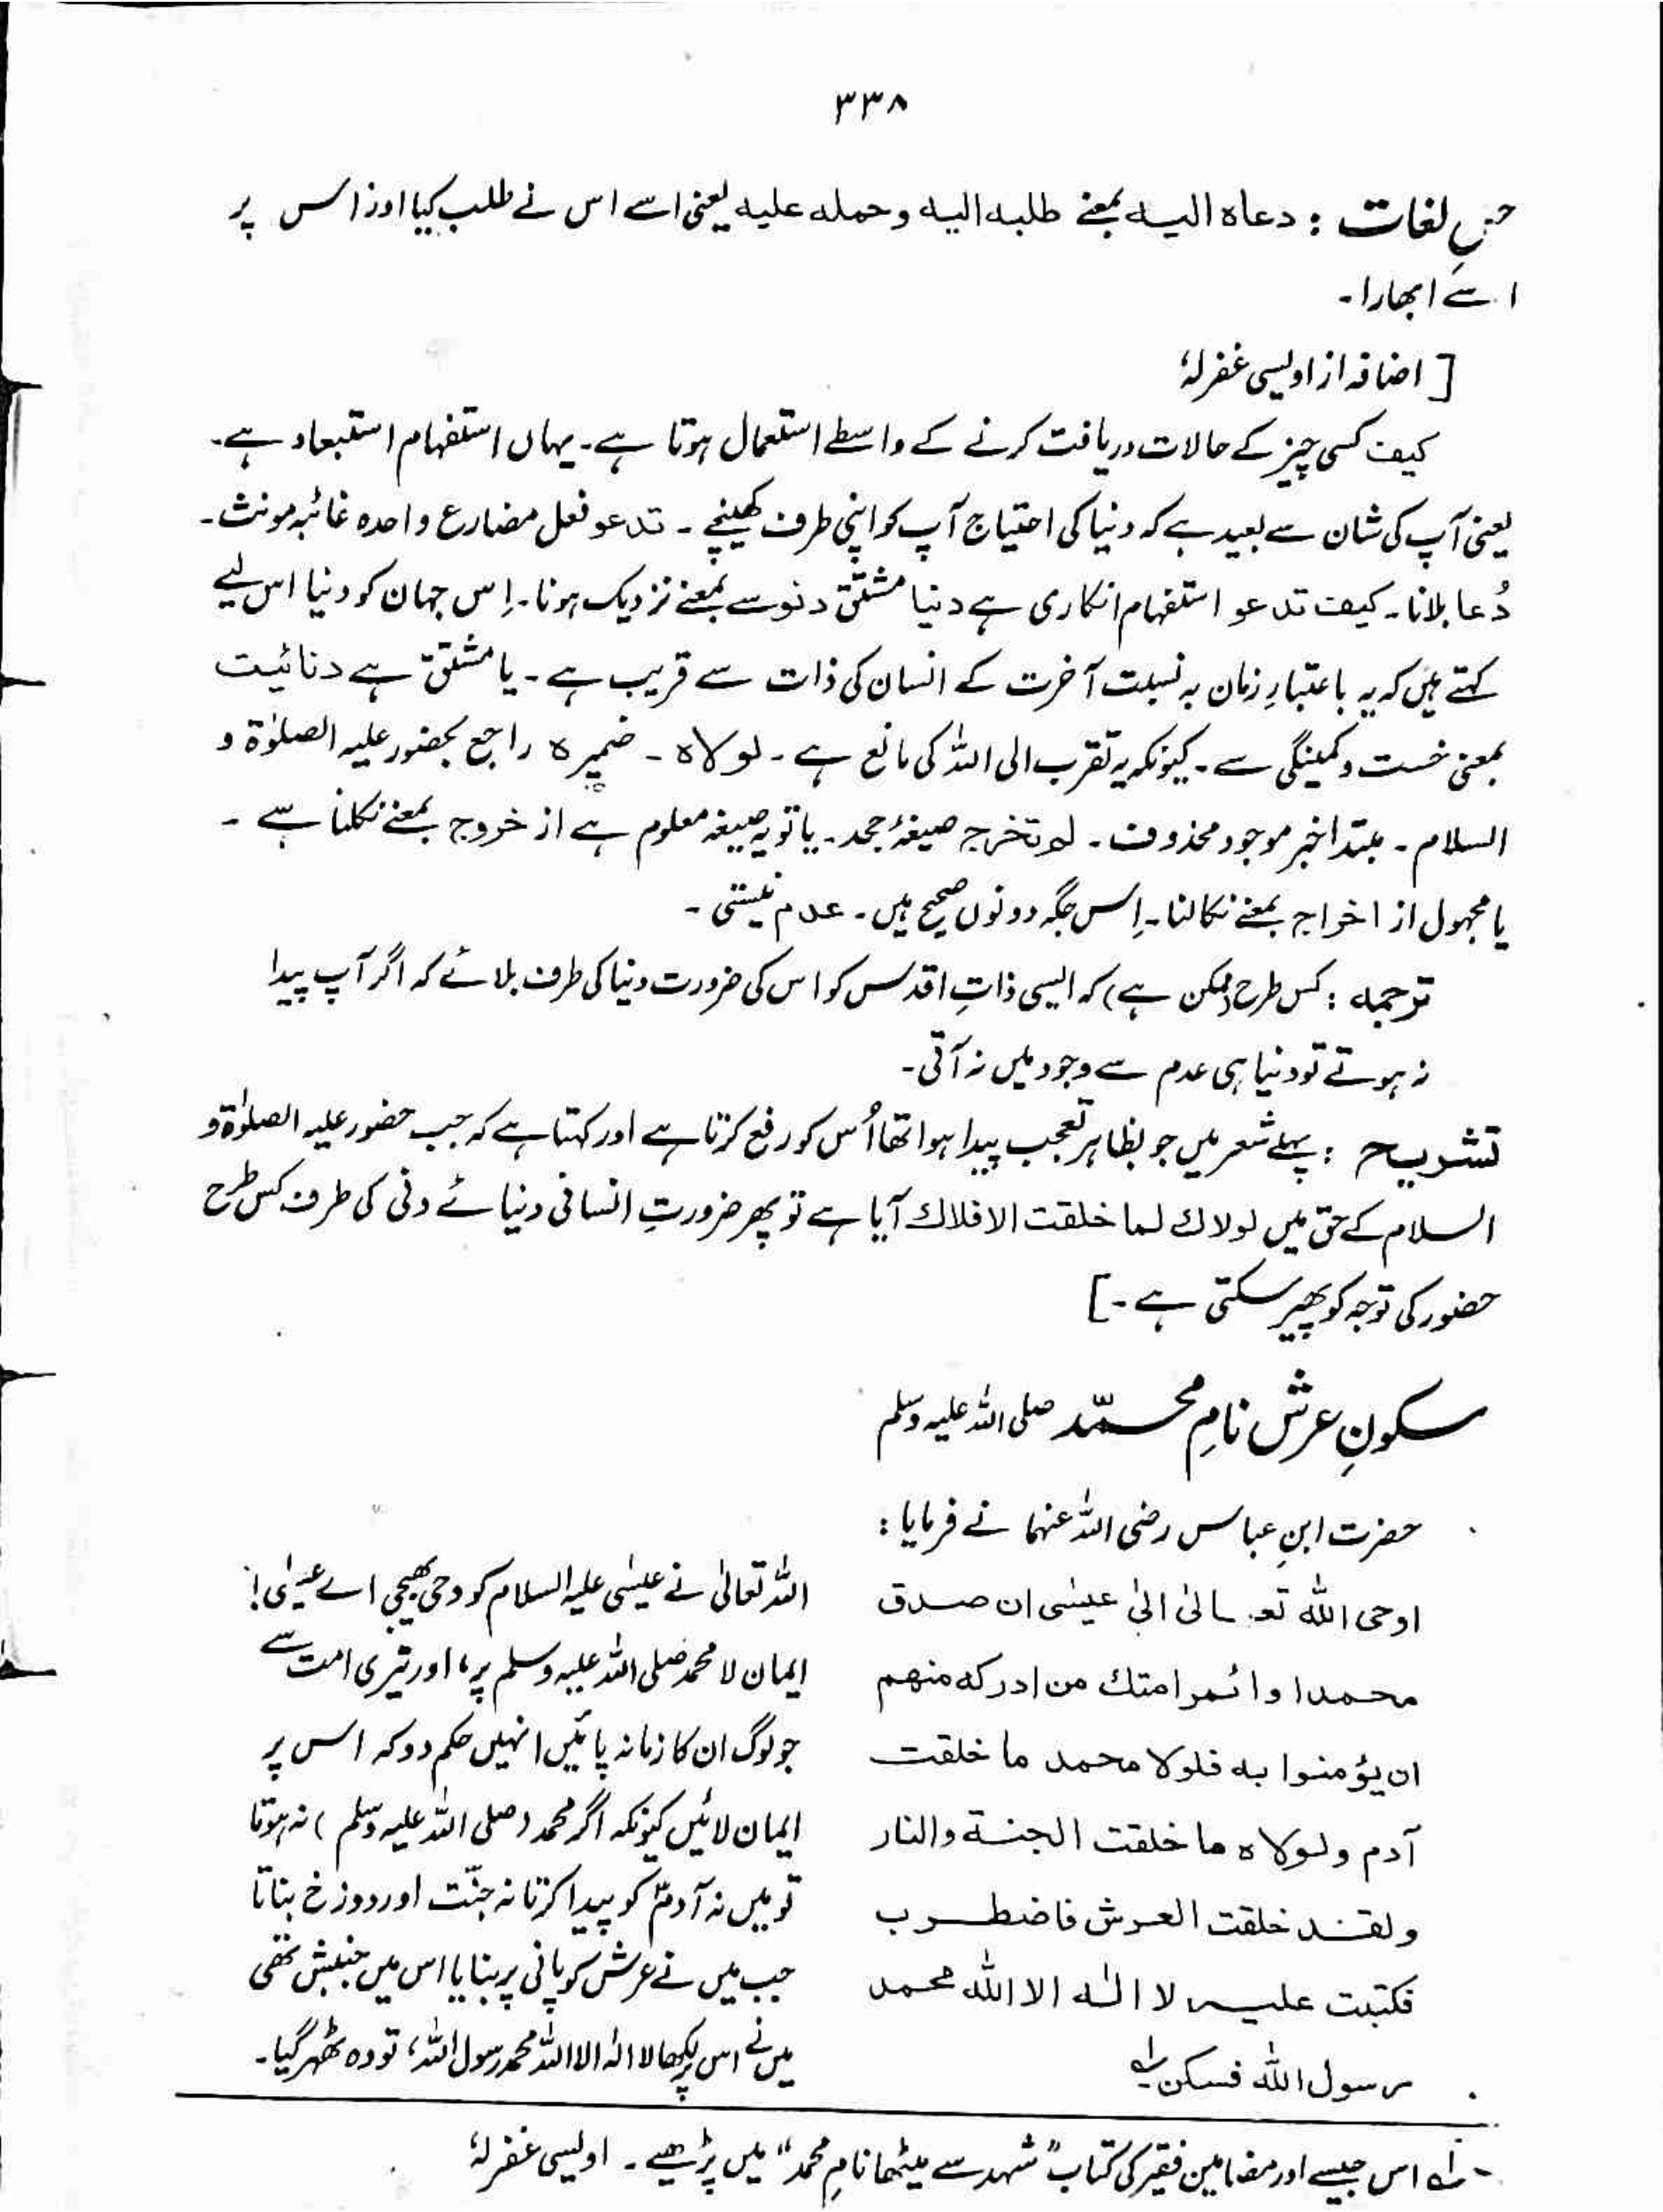 ۳۳۸
حلِ لغات : دعاه اليه بمعنے طلبه اليه وحمله عليه یعنی اسے اس نے طلب کیا اور اس پر
اسے ابھارا۔
[ اضافہ از اویسی غفرلہٗ
کیف کسی چیز کے حالات دریافت کرنے کے واسطے استعمال ہوتا ہے۔ یہاں استفہام استبعاد ہے۔
یعنی آپ کی شان سے بعید ہے کہ دنیا کی احتیاج آپ کو اپنی طرف کھینچے ۔ تدعو فعل مضارع واحدہ غائبہ مونث۔
دُعا بلانا۔ کیف تدعو استفہام انکاری ہے دنیا مشتق دنو سے بمعنے نزدیک ہونا۔ اِس جہان کو دنیا اس لیے
کہتے ہیں کہ یہ باعتبارِ زمان بہ نسبت آخرت کے انسان کی ذات سے قریب ہے۔ یا مشتق ہے دنائیت
بمعنی خست و کمینگی سے۔ کیونکہ یہ تقرب الی اللہ کی مانع ہے ۔ لولاہ ۔ ضمیر ہ راجع بحضور علیہ الصلوٰۃ و
السلام ۔ مبتدا خبر موجود محذوف ۔ لم تخرج صیغۂ جحد ۔ یا تو یہ صیغہ معلوم ہے از خروج بمعنے نکلنا ہے ۔
یا مجہول از اخراج بمعنے نکالنا۔ اِس جگہ دونوں صحیح ہیں ۔ عدم نیستی ۔
ترجمہ : کس طرح (ممکن ہے) کہ ایسی ذاتِ اقدس کو اس کی ضرورت دنیا کی طرف بلائے کہ اگر آپ پیدا
نہ ہوتے تو دنیا ہی عدم سے وجود میں نہ آتی۔
تشریح : پہلے شعر میں جو بظاہر تعجب پیدا ہوا تھا اُس کو رفع کرتا ہے اور کہتا ہے کہ جب حضور علیہ الصلوٰۃ و
السلام کے حق میں لولاك لما خلقت الافلاك آیا ہے تو پھر ضرورتِ انسانی دنیائے دنی کی طرف کس طرح
حضور کی توجہ کو پھیر سکتی ہے ۔]
سکونِ عرش نامِ محمّد صلی اللہ علیہ وسلم
حضرت ابنِ عباس رضی اللہ عنہما نے فرمایا :
اوحی الله تعالیٰ الیٰ عیسٰی ان صدق
محمدا وائمر امتك من ادركه منهم
ان يؤمنوا به فلولا محمد ما خلقت
آدم ولولاه ما خلقت الجنة والنار
ولقد خلقت العرش فاضطرب
فكتبت عليه لا اله الا الله محمد
رسول الله فسكن لہ
اللہ تعالیٰ نے عیسٰی علیہ السلام کو وحی بھیجی اے عیسٰی!
ایمان لا محمد صلی اللہ علیہ وسلم پر، اور تیری امت سے
جو لوگ ان کا زمانہ پائیں انہیں حکم دو کہ اس پر
ایمان لائیں کیونکہ اگر محمد (صلی اللہ علیہ وسلم) نہ ہوتا
تو میں نہ آدمؑ کو پیدا کرتا نہ جنّت اور دوزخ بناتا
جب میں نے عرش کو پانی پر بنایا اس میں جنبش تھی
میں نے اس پر لکھا لا الٰہ الا اللہ محمد رسول اللہ، تو وہ ٹھہر گیا۔
لہ اس جیسے اور مضامین فقیر کی کتاب "شہد سے میٹھا نامِ محمد" میں پڑھیے ۔ اویسی غفرلہٗ